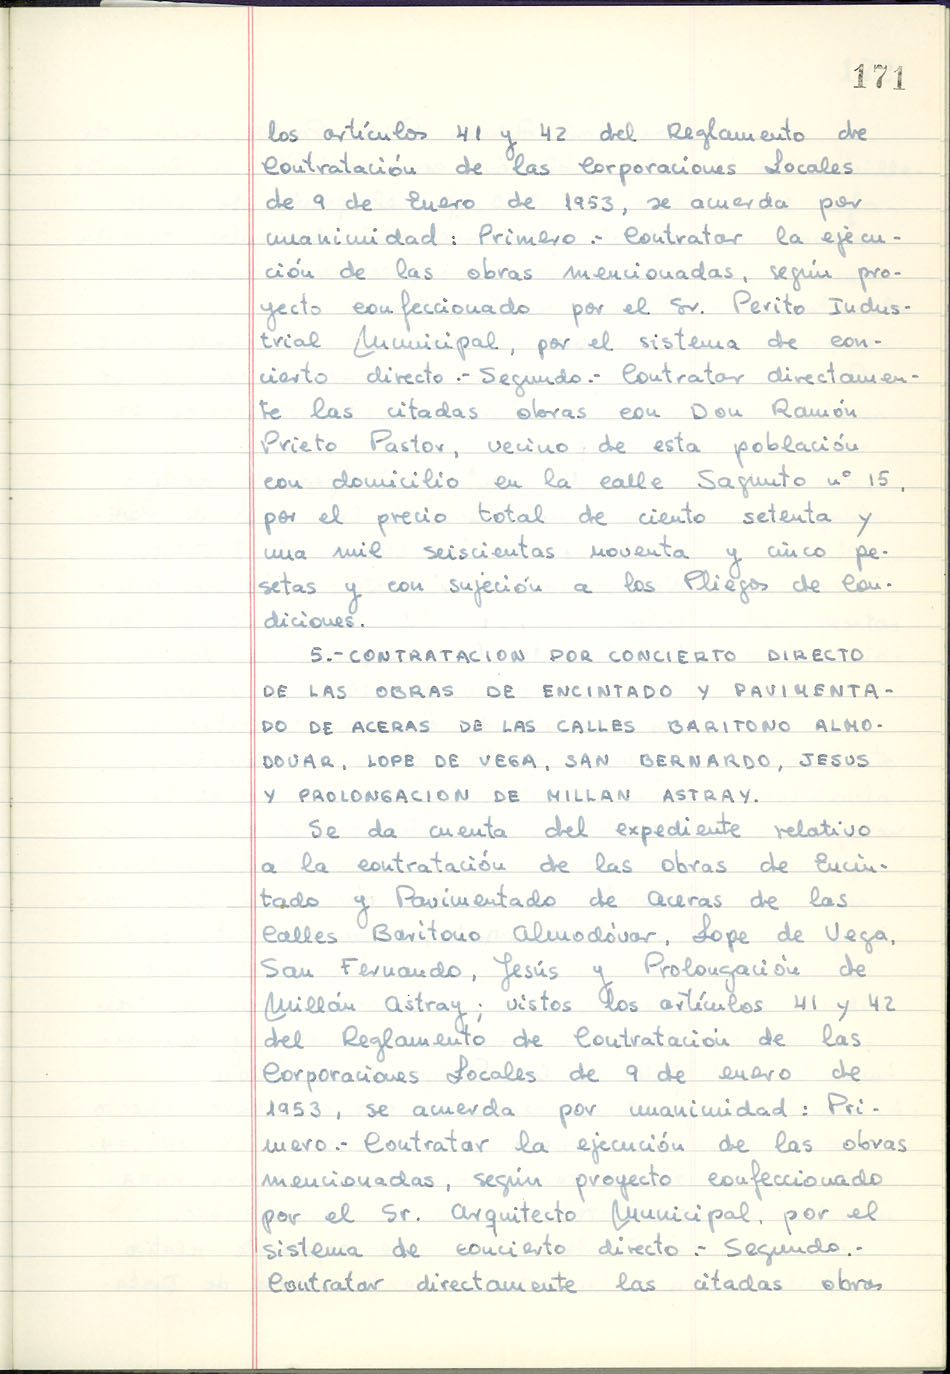 171
los artículos 41 y 42 del Reglamento de
Contratación de las Corporaciones Locales
de 9 de Enero de 1953, se acuerda por
unanimidad: Primero.- Contratar la ejecu-
ción de las obras mencionadas, según pro-
yecto confeccionado por el Sr. Perito Indus-
trial Municipal, por el sistema de con-
cierto directo.- Segundo.- Contratar directamen-
te las citadas obras con Don Ramón
Prieto Pastor, vecino de esta población
con domicilio en la calle Sagunto nº 15,
por el precio total de ciento setenta y
una mil seiscientas noventa y cinco pe-
setas y con sujeción a los Pliegos de Con-
diciones.
5.-CONTRATACION POR CONCIERTO DIRECTO
DE LAS OBRAS DE ENCINTADO Y PAVIMENTA-
DO DE ACERAS DE LAS CALLES BARITONO ALMO-
DOVAR, LOPE DE VEGA, SAN BERNARDO, JESUS
Y PROLONGACION DE MILLAN ASTRAY.
Se da cuenta del expediente relativo
a la contratación de las obras de Encin-
tado y Pavimentado de aceras de las
Calles Barítono Almodóvar, Lope de Vega,
San Fernando, Jesús y Prolongación de
Millán Astray; vistos los artículos 41 y 42
del Reglamento de Contratación de las
Corporaciones Locales de 9 de enero de
1953, se acuerda por unanimidad: Pri-
mero.- Contratar la ejecución de las obras
mencionadas, según proyecto confeccionado
por el Sr. Arquitecto Municipal, por el
sistema de concierto directo.- Segundo.-
Contratar directamente las citadas obras